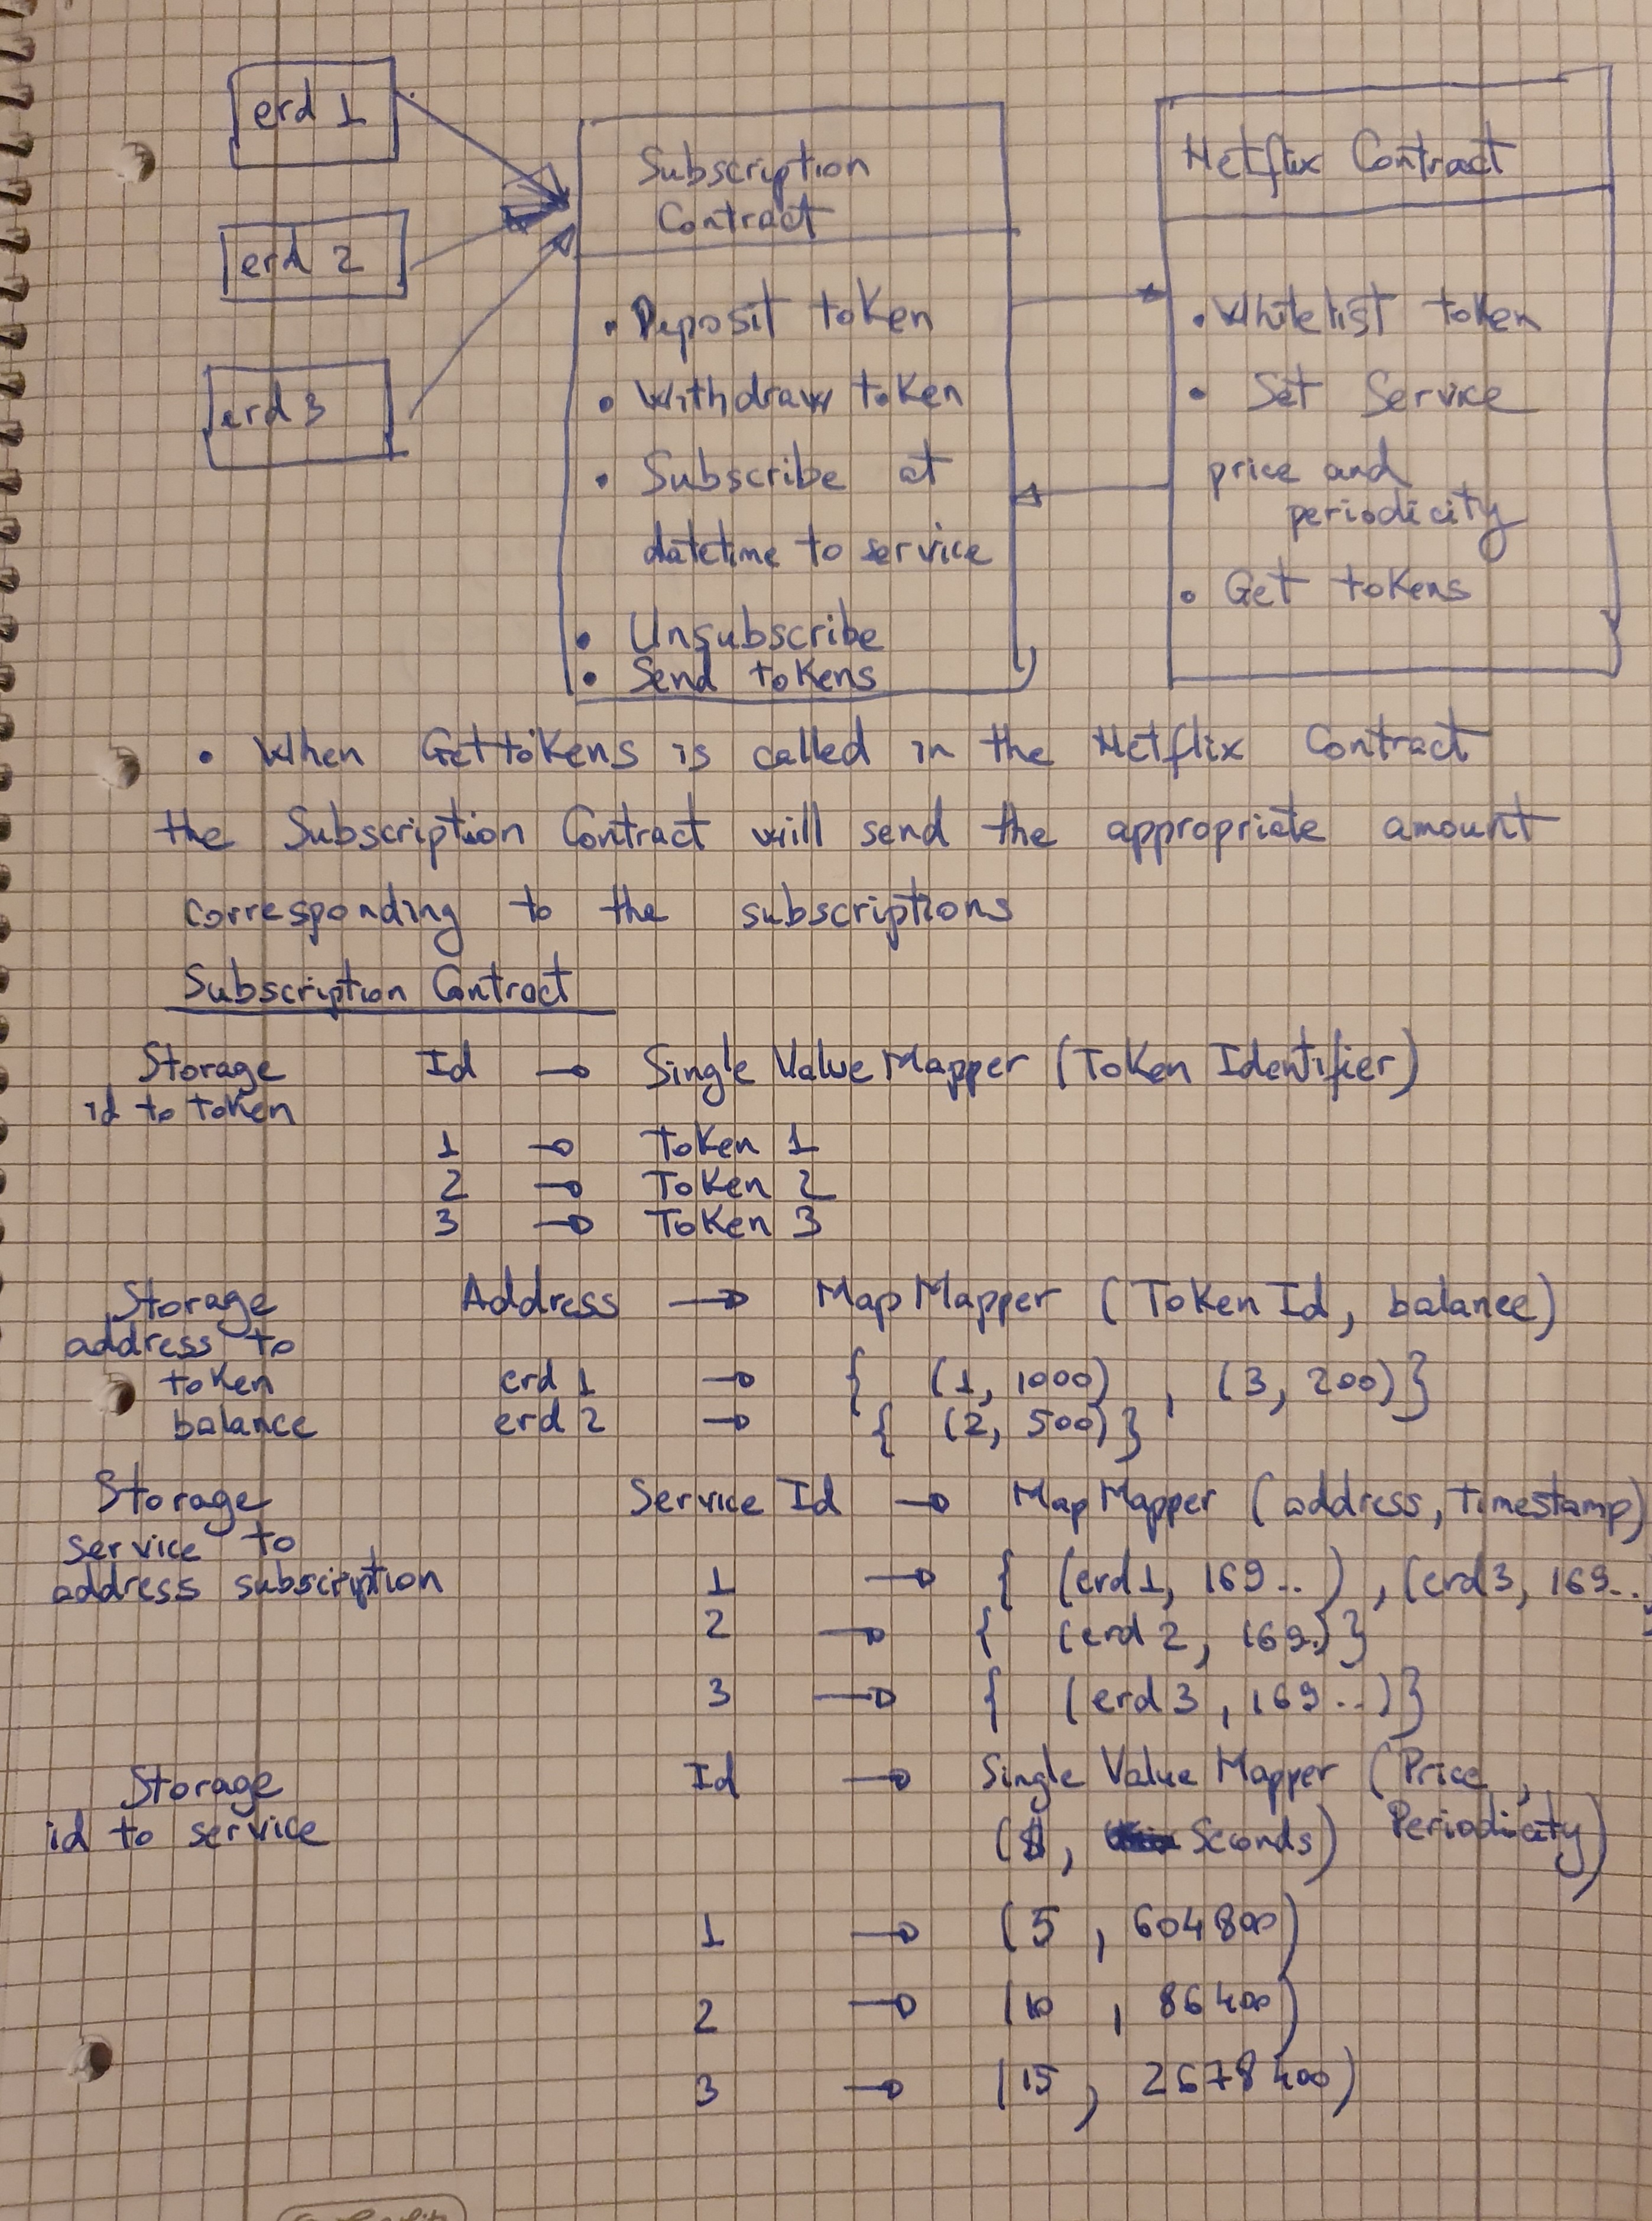 erd 1
erd 2
erd 3
Subscription
Contract
• Deposit token
• Withdraw token
• Subscribe at
datetime to service
• Unsubscribe
• Send tokens
Netflix Contract
• Whitelist token
• Set Service
price and
periodicity
• Get tokens
• When Get tokens is called in the Netflix Contract
the Subscription Contract will send the appropriate amount
corresponding to the subscriptions
Subscription Contract
Storage Id → Single Value Mapper (Token Identifier)
id to token
1 → Token 1
2 → Token 2
3 → Token 3
Storage Address → Map Mapper (Token Id, balance)
address to
token erd 1 → { (1, 1000) , (3, 200)}
balance erd 2 → { (2, 500)}
Storage Service Id → Map Mapper (address, Timestamp)
service to
address subscription 1 → { (erd1, 169..) , (erd3, 169..
2 → { (erd 2, 169.)}
3 → { (erd 3, 169..)}
Storage Id → Single Value Mapper (Price,
id to service ($, Seconds) Periodicity)
1 → (5 , 604800)
2 → (10 , 86400)
3 → (15 , 2678400)